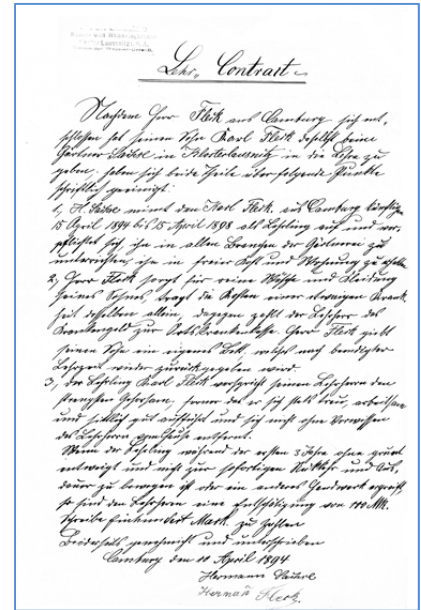 Lehr-Contract
Nachdem Herr Fleck aus Camburg sich ent-
schlossen hat seinen Sohn Karl Fleck daselbst beim
Gärtner in Klosterlausnitz in die Lehre zu
geben, haben sich beide Theile über folgende Punkte
schriftlich geeinigt:
1, H. nimmt den Karl Fleck aus Camburg
15 April 1894 bis 15 April 1898 als Lehrling auf und ver-
pflichtet sich, ihn in allen Branchen der Gärtnerei zu
unterrichten, ihn in freier Kost und Wohnung zu
2, Herr Fleck sorgt für reine Wäsche und Kleidung
seines Sohnes, trägt die Kosten einer etwaigen Krank-
heit desselben allein, dagegen zahlt der Lehrherr das
Krankengeld zur Ortskrankenkasse. Herr Fleck giebt
seinem Sohn ein eigenes Bett, welches nach beendigter
Lehrzeit wieder zurückgegeben wird.
3, der Lehrling Karl Fleck verspricht seinem Lehrherrn den
strengsten Gehorsam, ferner daß er sich stets treu, arbeitsam
und sittlich gut aufführt und sich nicht ohne Vorwissen
des Lehrherrn entfernt.
Wenn der Lehrling während der ersten 3 Jahre ohne Grund
entweicht und nicht zur sofortigen Rückkehr und Aus-
dauer zu bewegen ist oder ein anderes Handwerk ergreift,
so sind dem Lehrherrn eine Entschädigung von Mk.
Schreibe Mark. zu zahlen
Beiderseits genehmigt und unterschrieben
Camburg den 10 April 1894.
Hermann
Fleck.